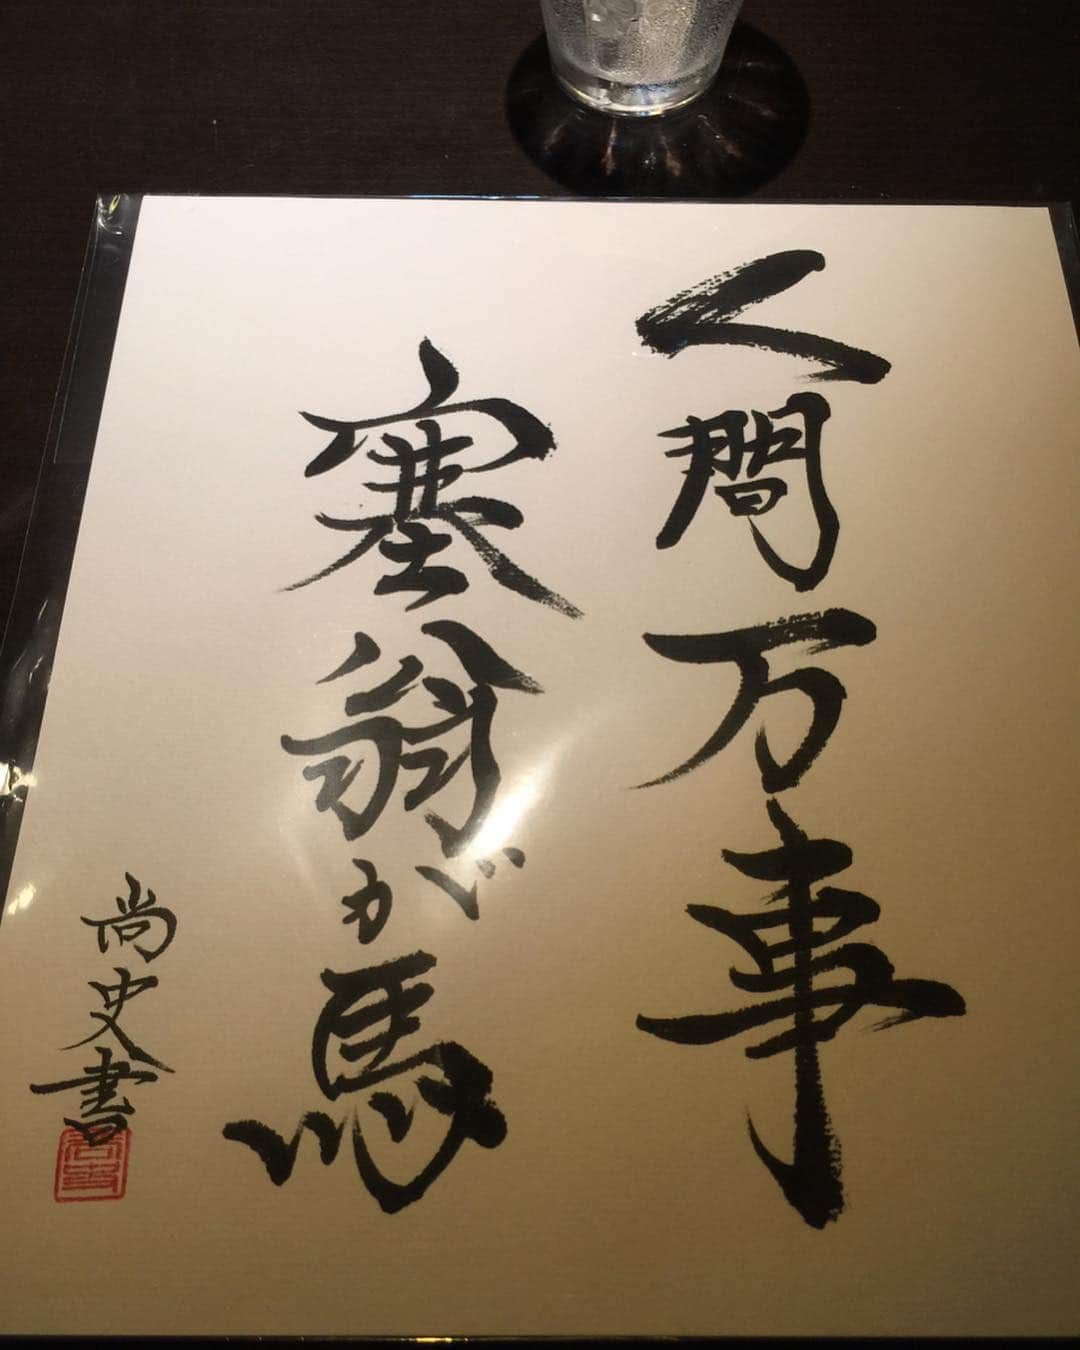 人間万事
塞翁が馬
尚史書